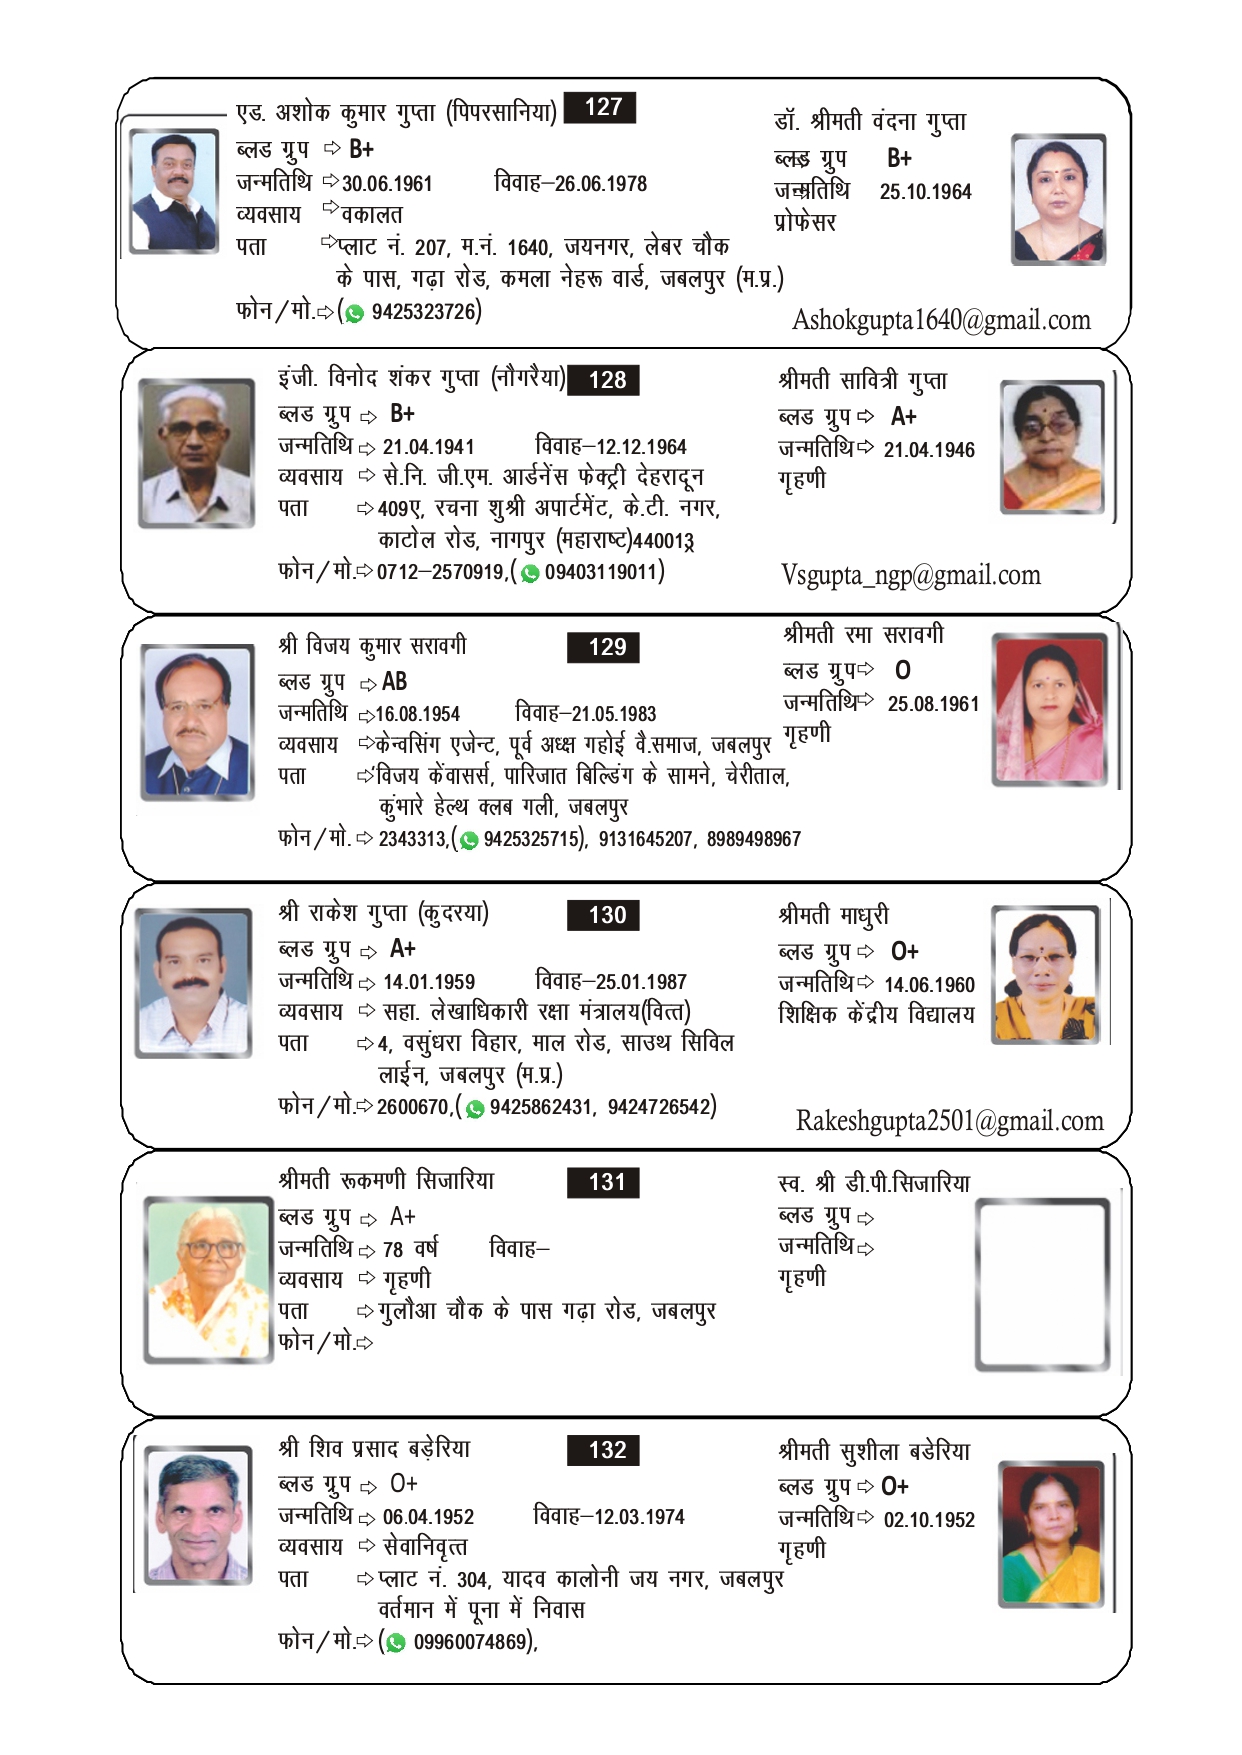 एड. अशोक कुमार गुप्ता (पिपरसानिया) 127
ब्लड ग्रुप ⇨ B+
जन्मतिथि ⇨ 30.06.1961 विवाह–26.06.1978
व्यवसाय ⇨ वकालत
पता ⇨ प्लाट नं. 207, म.नं. 1640, जयनगर, लेबर चौक
के पास, गढ़ा रोड, कमला नेहरू वार्ड, जबलपुर (म.प्र.)
फोन/मो.⇨ ( 9425323726)
डॉ. श्रीमती वंदना गुप्ता
ब्लड ग्रुप B+
जन्मतिथि 25.10.1964
प्रोफेसर
Ashokgupta1640@gmail.com
इंजी. विनोद शंकर गुप्ता (नौगरैया) 128
ब्लड ग्रुप ⇨ B+
जन्मतिथि ⇨ 21.04.1941 विवाह–12.12.1964
व्यवसाय ⇨ से.नि. जी.एम. आर्डनेंस फेक्ट्री देहरादून
पता ⇨ 409ए, रचना शुश्री अपार्टमेंट, के.टी. नगर,
काटोल रोड, नागपुर (महाराष्ट)440013
फोन/मो.⇨ 0712–2570919,( 09403119011)
श्रीमती सावित्री गुप्ता
ब्लड ग्रुप ⇨ A+
जन्मतिथि ⇨ 21.04.1946
गृहणी
Vsgupta_ngp@gmail.com
श्री विजय कुमार सरावगी 129
ब्लड ग्रुप ⇨ AB
जन्मतिथि ⇨ 16.08.1954 विवाह–21.05.1983
व्यवसाय ⇨ केन्वसिंग एजेन्ट, पूर्व अध्क्ष गहोई वै.समाज, जबलपुर
पता ⇨ विजय केंवासर्स, पारिजात बिल्डिंग के सामने, चेरीताल,
कुंभारे हेल्थ क्लब गली, जबलपुर
फोन/मो. ⇨ 2343313,( 9425325715), 9131645207, 8989498967
श्रीमती रमा सरावगी
ब्लड ग्रुप ⇨ O
जन्मतिथि ⇨ 25.08.1961
गृहणी
श्री राकेश गुप्ता (कुदरया) 130
ब्लड ग्रुप ⇨ A+
जन्मतिथि ⇨ 14.01.1959 विवाह–25.01.1987
व्यवसाय ⇨ सहा. लेखाधिकारी रक्षा मंत्रालय(वित्त)
पता ⇨ 4, वसुंधरा विहार, माल रोड, साउथ सिविल
लाईन, जबलपुर (म.प्र.)
फोन/मो.⇨ 2600670,( 9425862431, 9424726542)
श्रीमती माधुरी
ब्लड ग्रुप ⇨ O+
जन्मतिथि ⇨ 14.06.1960
शिक्षिक केंद्रीय विद्यालय
Rakeshgupta2501@gmail.com
श्रीमती रूकमणी सिजारिया 131
ब्लड ग्रुप ⇨ A+
जन्मतिथि ⇨ 78 वर्ष विवाह–
व्यवसाय ⇨ गृहणी
पता ⇨ गुलौआ चौक के पास गढ़ा रोड, जबलपुर
फोन/मो.⇨
स्व. श्री डी.पी.सिजारिया
ब्लड ग्रुप ⇨
जन्मतिथि ⇨
गृहणी
श्री शिव प्रसाद बड़ेरिया 132
ब्लड ग्रुप ⇨ O+
जन्मतिथि ⇨ 06.04.1952 विवाह–12.03.1974
व्यवसाय ⇨ सेवानिवृत्त
पता ⇨ प्लाट नं. 304, यादव कालोनी जय नगर, जबलपुर
वर्तमान में पूना में निवास
फोन/मो.⇨ ( 09960074869),
श्रीमती सुशीला बडेरिया
ब्लड ग्रुप ⇨ O+
जन्मतिथि ⇨ 02.10.1952
गृहणी